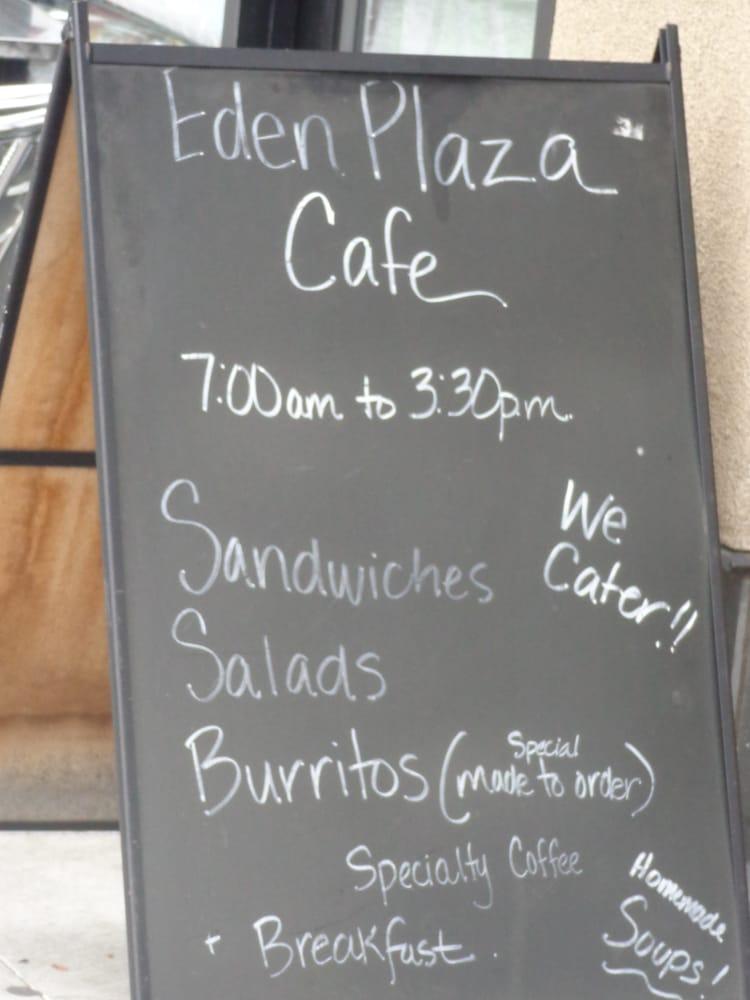 Eden Plaza
Cafe
7:00am to 3:30pm.
We
Cater!!
Sandwiches
Salads
Special
Burritos (made to order)
Specialty Coffee
+ Breakfast.
Homemade
Soups!